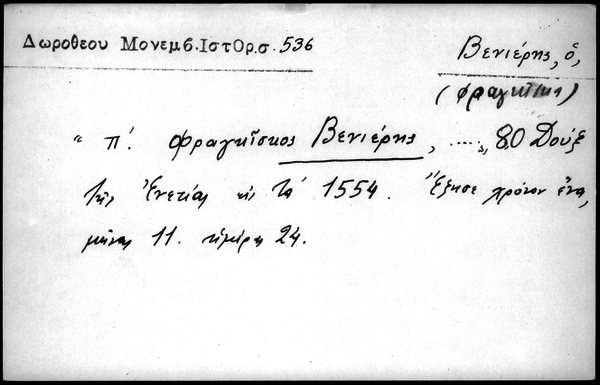 Δωροθεου Μονεμβ. Ιστορ. σ. 536
Βενιέρης, ὁ,
(Φραγκῖσκος)
"π'. Φραγκῖσκος Βενιέρης, ....., 80 Δούξ
τῆς Ἑνετίας εἰς τὰ 1554. Ἔζησε χρόνον ἕνα,
μῆνας 11. ἡμέρας 24.